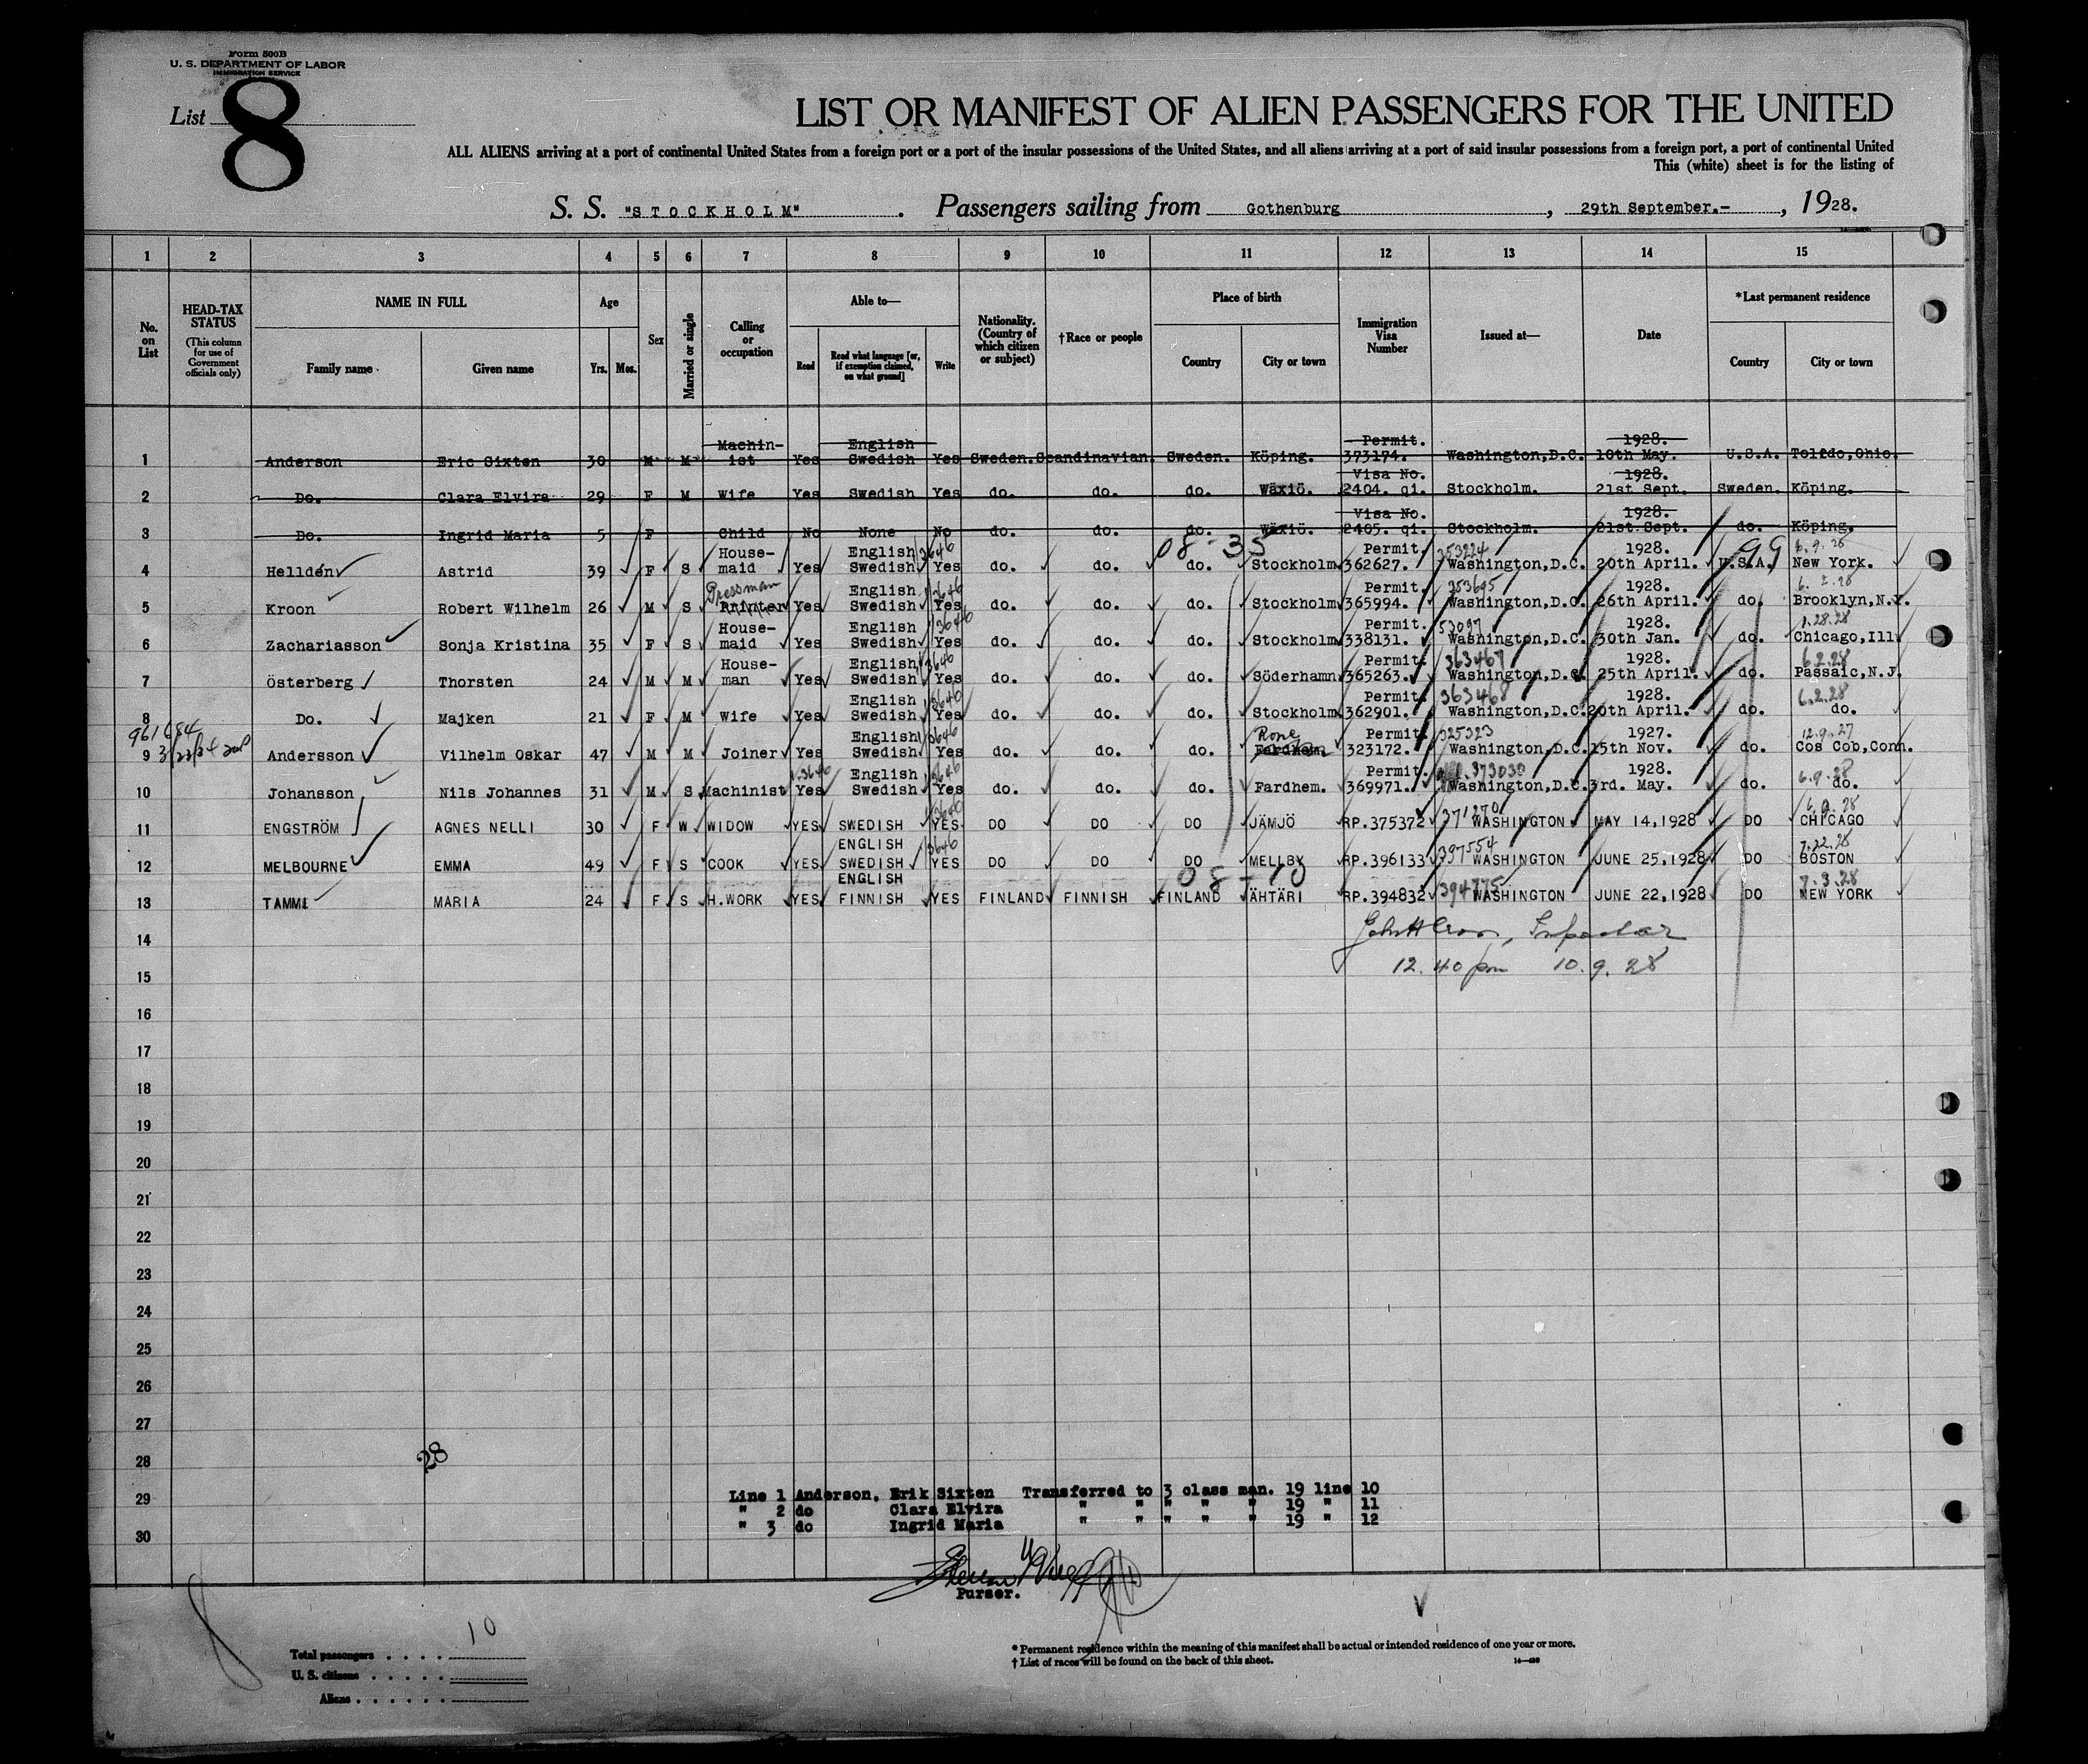 Form 500B
U. S. DEPARTMENT OF LABOR
IMMIGRATION SERVICE
List 8
LIST OR MANIFEST OF ALIEN PASSENGERS FOR THE UNITED
ALL ALIENS arriving at a port of continental United States from a foreign port or a port of the insular possessions of the United States, and all aliens arriving at a port of said insular possessions from a foreign port, a port of continental United
This (white) sheet is for the listing of
S. S. "STOCKHOLM". Passengers sailing from Gothenburg, 29th September.-, 1928.
1 2 3 4 5 6 7 8 9 10 11 12 13 14 15
No. on List
HEAD-TAX STATUS (This column for use of Government officials only)
NAME IN FULL
Family name Given name
Age
Yrs. Mos.
Sex
Married or single
Calling or occupation
Able to—
Read
Read what language [or, if exemption claimed, on what ground]
Write
Nationality. (Country of which citizen or subject)
†Race or people
Place of birth
Country City or town
Immigration Visa Number
Issued at—
Date
*Last permanent residence
Country City or town
Machin- English Permit. 1928.
1 Anderson Eric Sixten 30 M M ist Yes Swedish Yes Sweden. Scandinavian. Sweden. Köping. 373174. Washington,D.C. 10th May. U.S.A. Toledo,Ohio.
Visa No. 1928.
2 Do. Clara Elvira 29 F M Wife Yes Swedish Yes do. do. do. Wäxiö. 2404. qi. Stockholm. 21st Sept. Sweden. Köping.
Visa No. 1928.
3 Do. Ingrid Maria 5 F Child No None No do. do. do. Wäxiö. 2405. qi. Stockholm. 21st.Sept. do. Köping.
08-35 99
House- English 3646 Permit. 353224 1928. 6.9.28
4 Helldén Astrid 39 F S maid Yes Swedish Yes do. do. do. Stockholm 362627. Washington,D.C. 20th April. U.S.A. New York.
Pressman English 3646 Permit. 353695 1928.
5 Kroon Robert Wilhelm 26 M S Printer Yes Swedish Yes do. do. do. Stockholm 365994. Washington,D.C. 26th April. do. Brooklyn,N.Y.
House- English 3646 Permit. 53097 1928. 1.28.28
6 Zachariasson Sonja Kristina 35 F S maid Yes Swedish Yes do. do. do. Stockholm 338131. Washington,D.C. 30th Jan. do. Chicago,Ill
House- English 3646 Permit. 363467 1928. 6.2.28
7 Österberg Thorsten 24 M M man Yes Swedish Yes do. do. do. Söderhamn 365263. Washington,D.C. 25th April. do. Passaic,N.J.
English 3646 Permit. 363468 1928. 6.2.28
8 Do. Majken 21 F M Wife Yes Swedish Yes do. do. do. Stockholm 362901. Washington,D.C. 20th April. do. do.
961684
English 3646 Rone Permit. 325323 1927. 12.9.27
9 Andersson Vilhelm Oskar 47 M M Joiner Yes Swedish Yes do. do. do. Fardhem. 323172. Washington,D.C. 15th Nov. do. Cos Cob,Conn.
3646 English 3646 Permit. 373030 1928. 6.9.28
10 Johansson Nils Johannes 31 M S Machinist Yes Swedish Yes do. do. do. Fardhem. 369971. Washington,D.C. 3rd. May. do. do.
3646 371270 6.9.28
11 ENGSTRÖM AGNES NELLI 30 F W WIDOW YES SWEDISH YES DO DO DO JÄMJÖ RP.375372 WASHINGTON MAY 14,1928 DO CHICAGO
ENGLISH 3646 397554 7.22.28
12 MELBOURNE EMMA 49 F S COOK YES SWEDISH YES DO DO DO MELLBY RP.396133 WASHINGTON JUNE 25,1928 DO BOSTON
ENGLISH 08-10 394775 7.3.28
13 TAMMI MARIA 24 F S H.WORK YES FINNISH YES FINLAND FINNISH FINLAND ÄHTÄRI RP.394832 WASHINGTON JUNE 22,1928 DO NEW YORK
14
12.40 pm 10.9.28
15
16
17
18
19
20
21
22
23
24
25
26
27
28 28
29
30
Line 1 Anderson, Erik Sixten Transferred to 3 class man. 19 line 10
" 2 do Clara Elvira " " " " " 19 " 11
" 3 do Ingrid Maria " " " " " 19 " 12
Purser.
Total passengers . . . . 10
U. S. citizens . . . . .
Aliens . . . . . .
* Permanent residence within the meaning of this manifest shall be actual or intended residence of one year or more.
† List of races will be found on the back of this sheet.